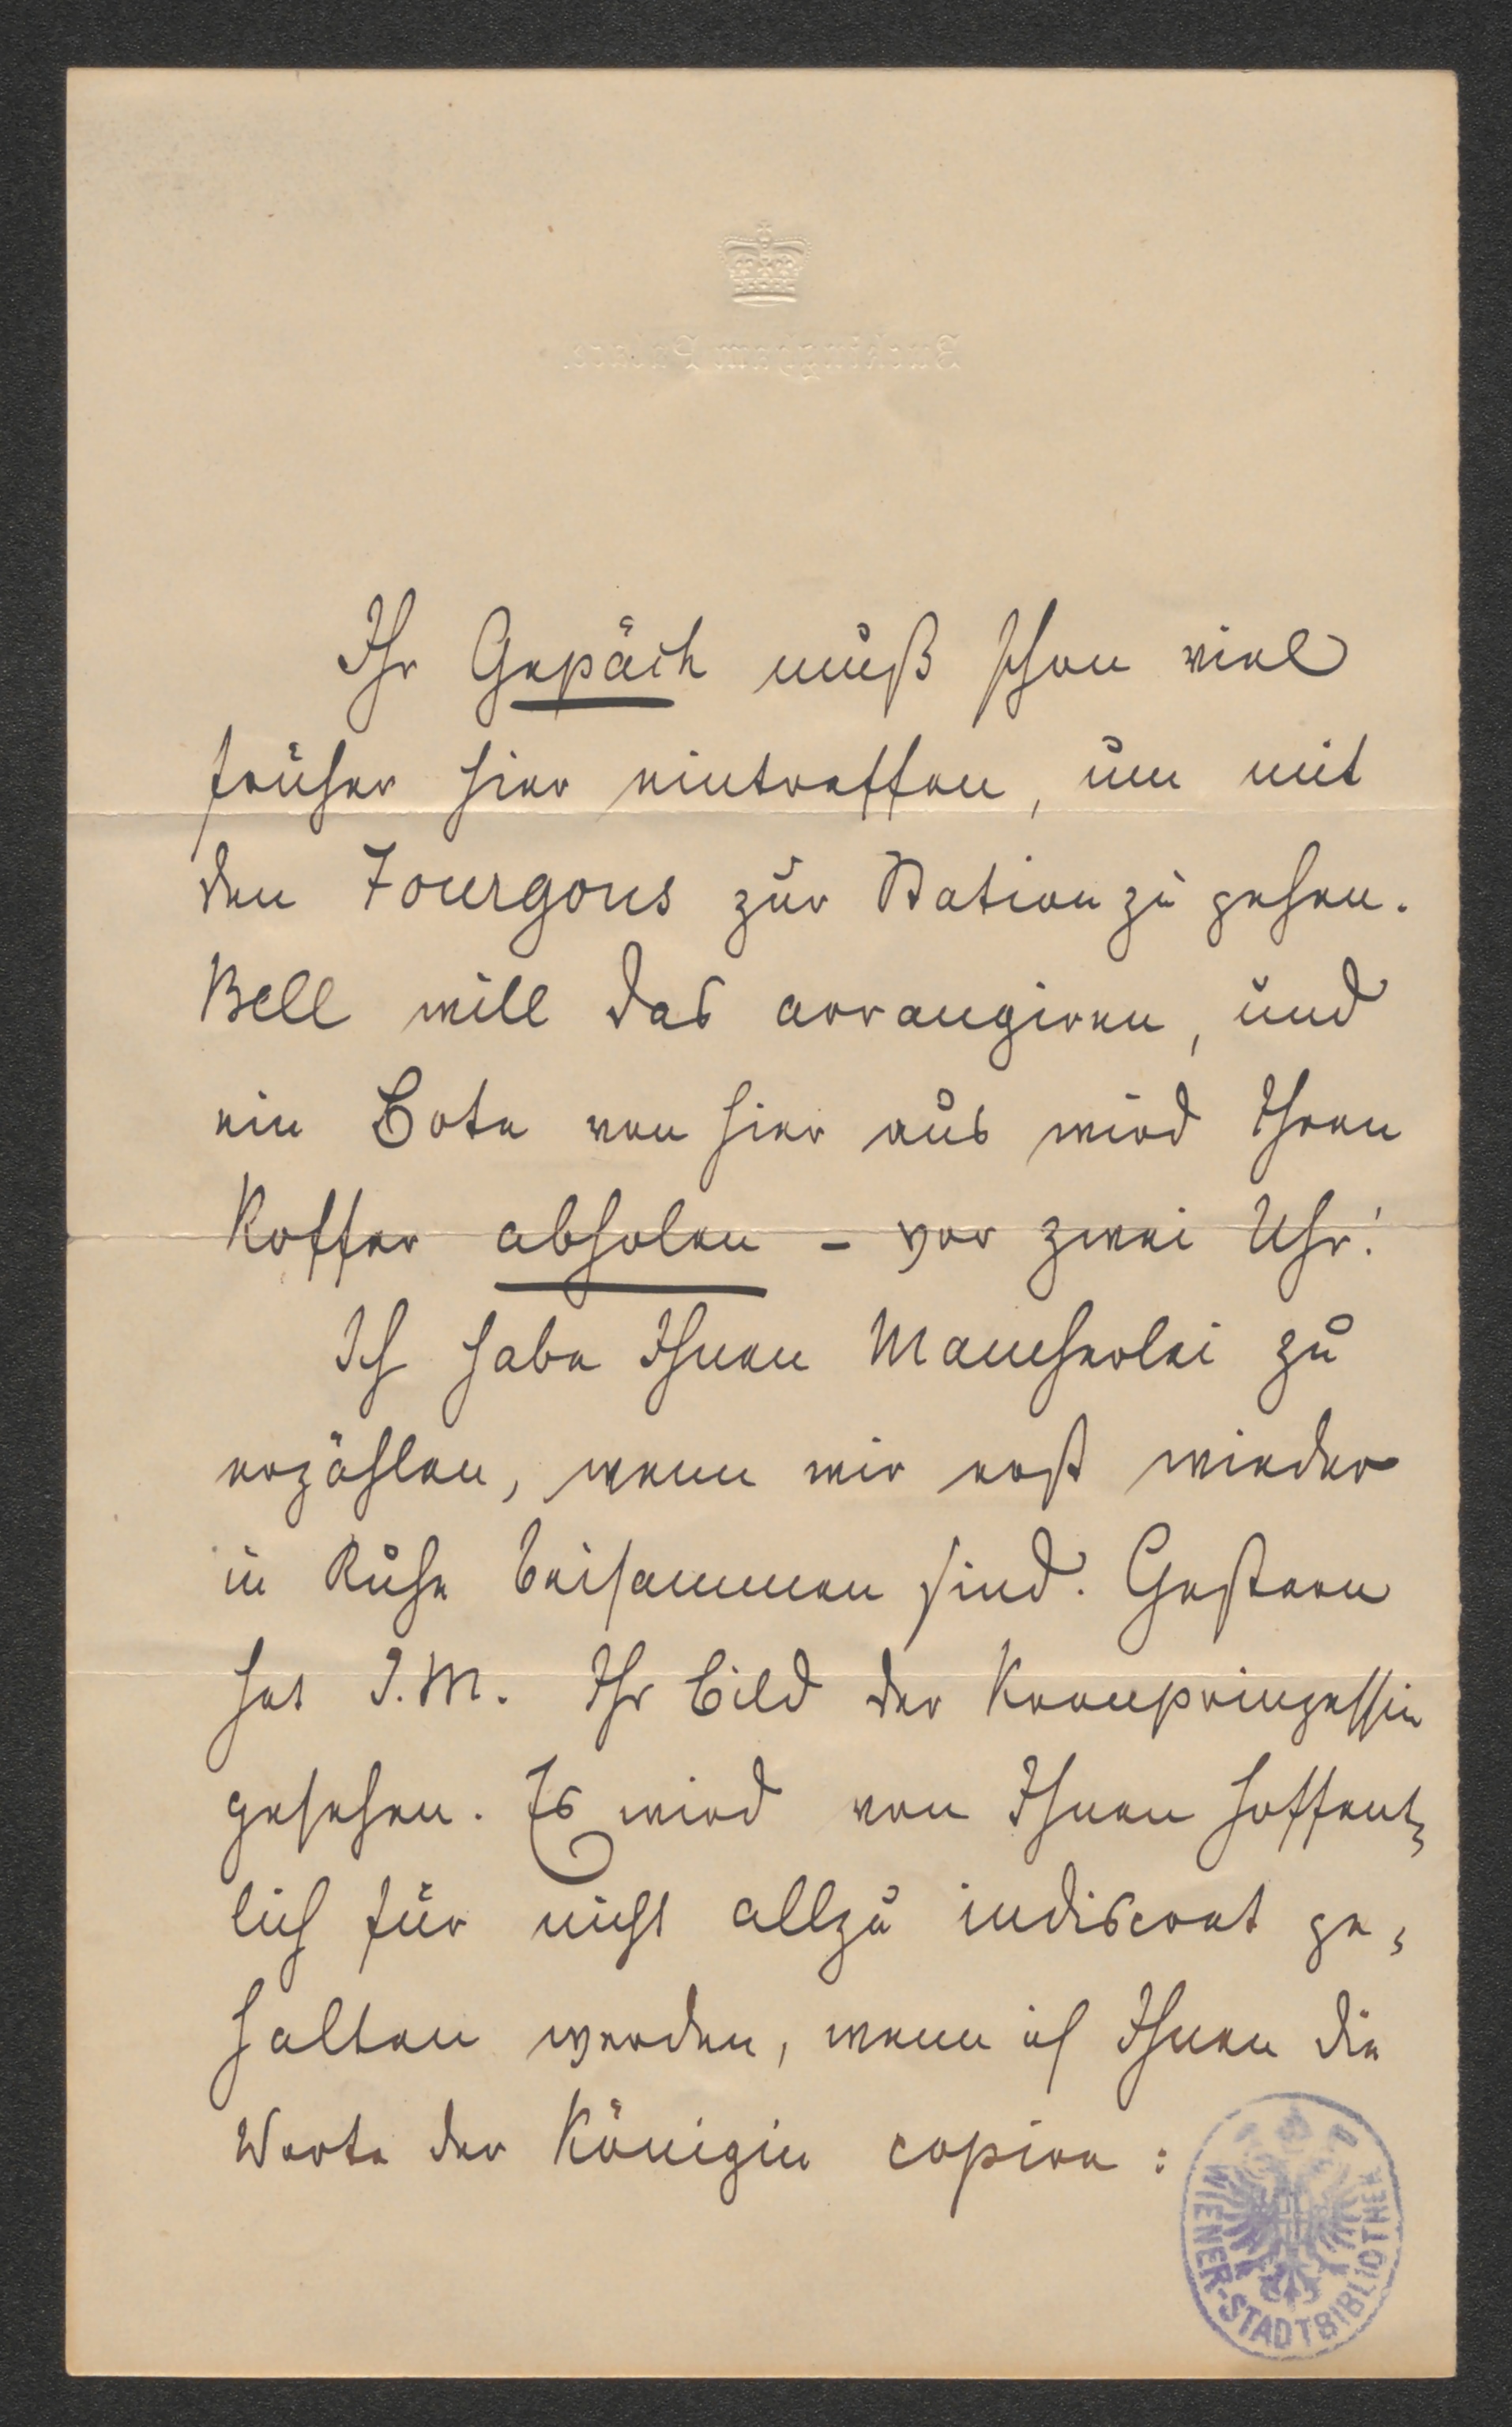 Buckingham Palace.
Ihr Gepäck muß schon viel
früher hier eintreffen, um mit
den Fourgons zur Station zu gehen.
Bell will das arrangiren, und
ein Bote von hier aus wird Ihren
Koffer abholen – vor zwei Uhr!
Ich habe Ihnen Mancherlei zu
erzählen, wenn wir erst wieder
in Ruhe beisammen sind. Gestern
hat I.M. Ihr Bild der Kronprinzessin
gesehen. Es wird von Ihnen hoffent-
lich für nicht allzu indiscret ge-
halten werden, wenn ich Ihnen die
Worte der Königin copire:
WIENER-STADTBIBLIOTHEK